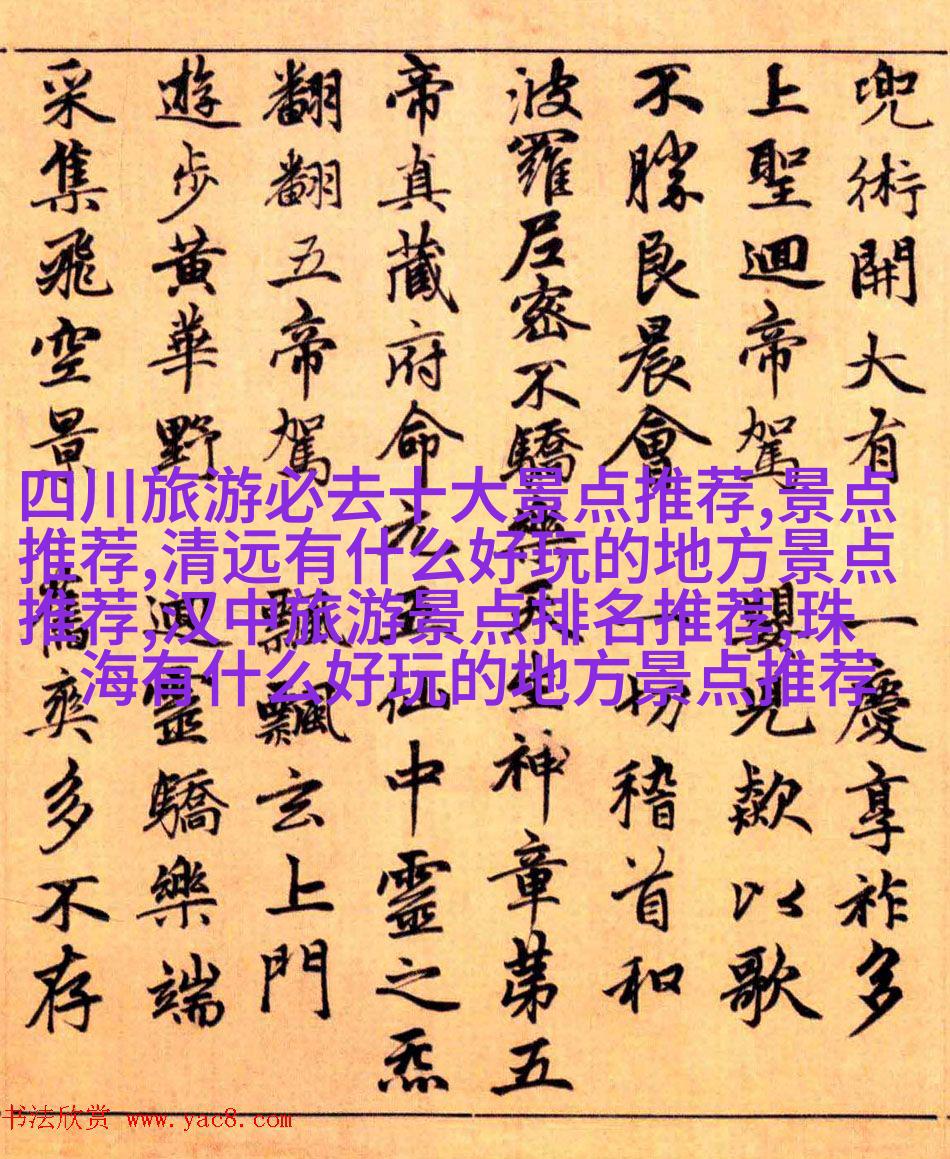 兜術開大有 一慶享祚多
上聖迴帝駕 嬰兒歎以歌
不勝良晨會 一切稽首和
波羅尼密不驕樂天生神章第五
帝真藏府命元五仙中靈之炁
翻翻五帝駕 飄飄玄上門
遊步黃華野 迴靈驕樂端
采集飛空景 舊爽多不存
四川旅游必去十大景点推荐,景点
推荐,清远有什么好玩的地方景点
推荐,汉中旅游景点排名推荐,珠
海有什么好玩的地方景点推荐
书法欣赏 www.yac8.com